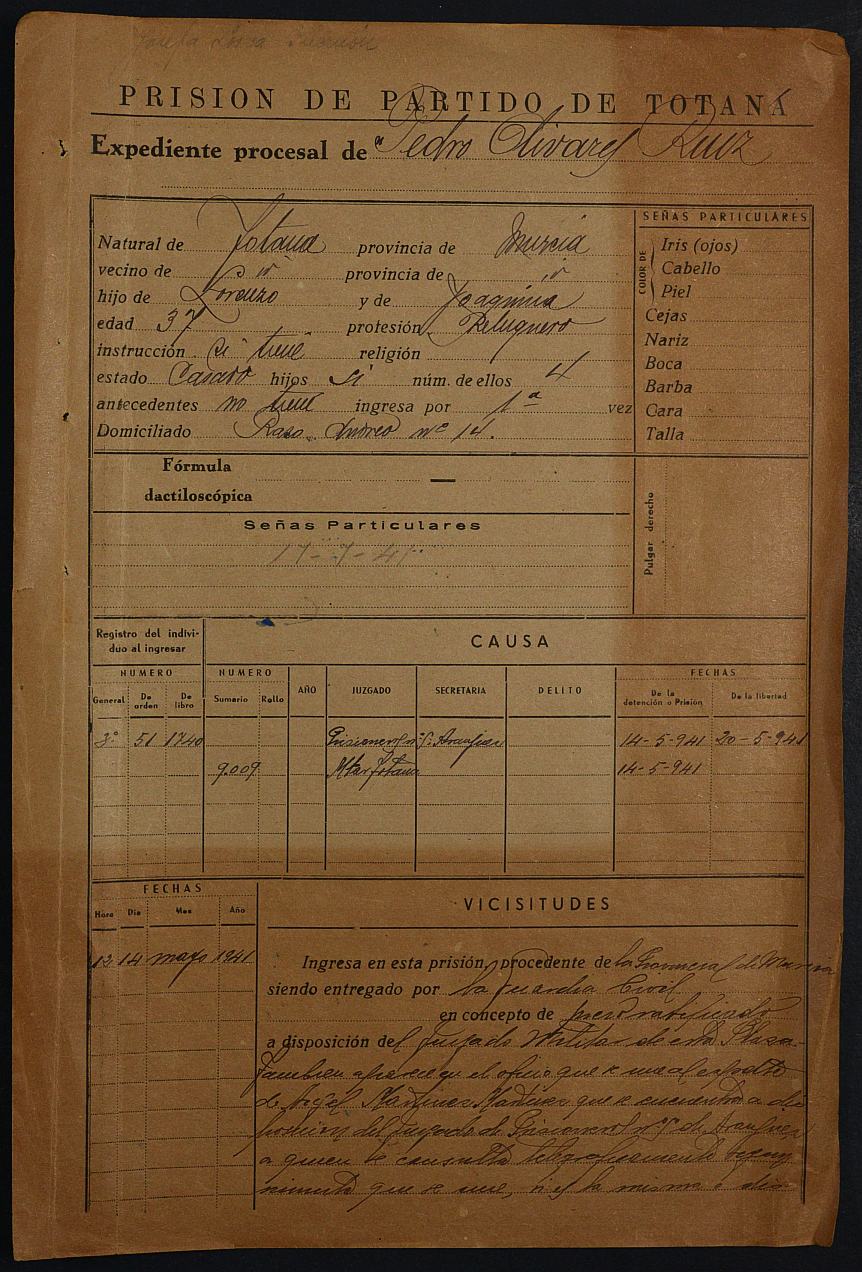 PRISION DE PARTIDO DE TOTANA
Expediente procesal de Pedro Olivares Ruiz
Natural de Totana provincia de Murcia
vecino de id provincia de id
hijo de Lorenzo y de Joaquina
edad 37 profesión Peluquero
instrucción si tiene religión
estado Casado hijos si núm. de ellos 4
antecedentes no tiene ingresa por 1ª vez
Domiciliado Andreo nº 14.
SEÑAS PARTICULARES
COLOR DE
Iris (ojos)
Cabello
Piel
Cejas
Nariz
Boca
Barba
Cara
Talla
Fórmula
dactiloscópica
Pulgar derecho
Señas Particulares
17-7-41
Registro del indivi-
duo al ingresar
CAUSA
NUMERO NUMERO AÑO JUZGADO SECRETARIA DELITO FECHAS
General De orden De libro Sumario Rollo De la detención o Prisión De la libertad
3º 51 1740 Prisioneros nº 5 Aranjuez 14-5-941 20-5-941
9.009 Mtar Totana 14-5-941
FECHAS
Hora Dia Mes Año
VICISITUDES
12 14 mayo 1941 Ingresa en esta prisión, procedente de la Provincial de Murcia
siendo entregado por la Guardia Civil
en concepto de preso
a disposición del Juzgado Militar de esta Plaza.
Tambien aparece en el oficio que se une al expdte
de Angel Martinez Martinez que se encuentra a dis
posicion del Juzgado de Prisioneros nº 5 de Aranjuez
a quien se consulta telegraficamente segun
minuta que se une, si es la misma